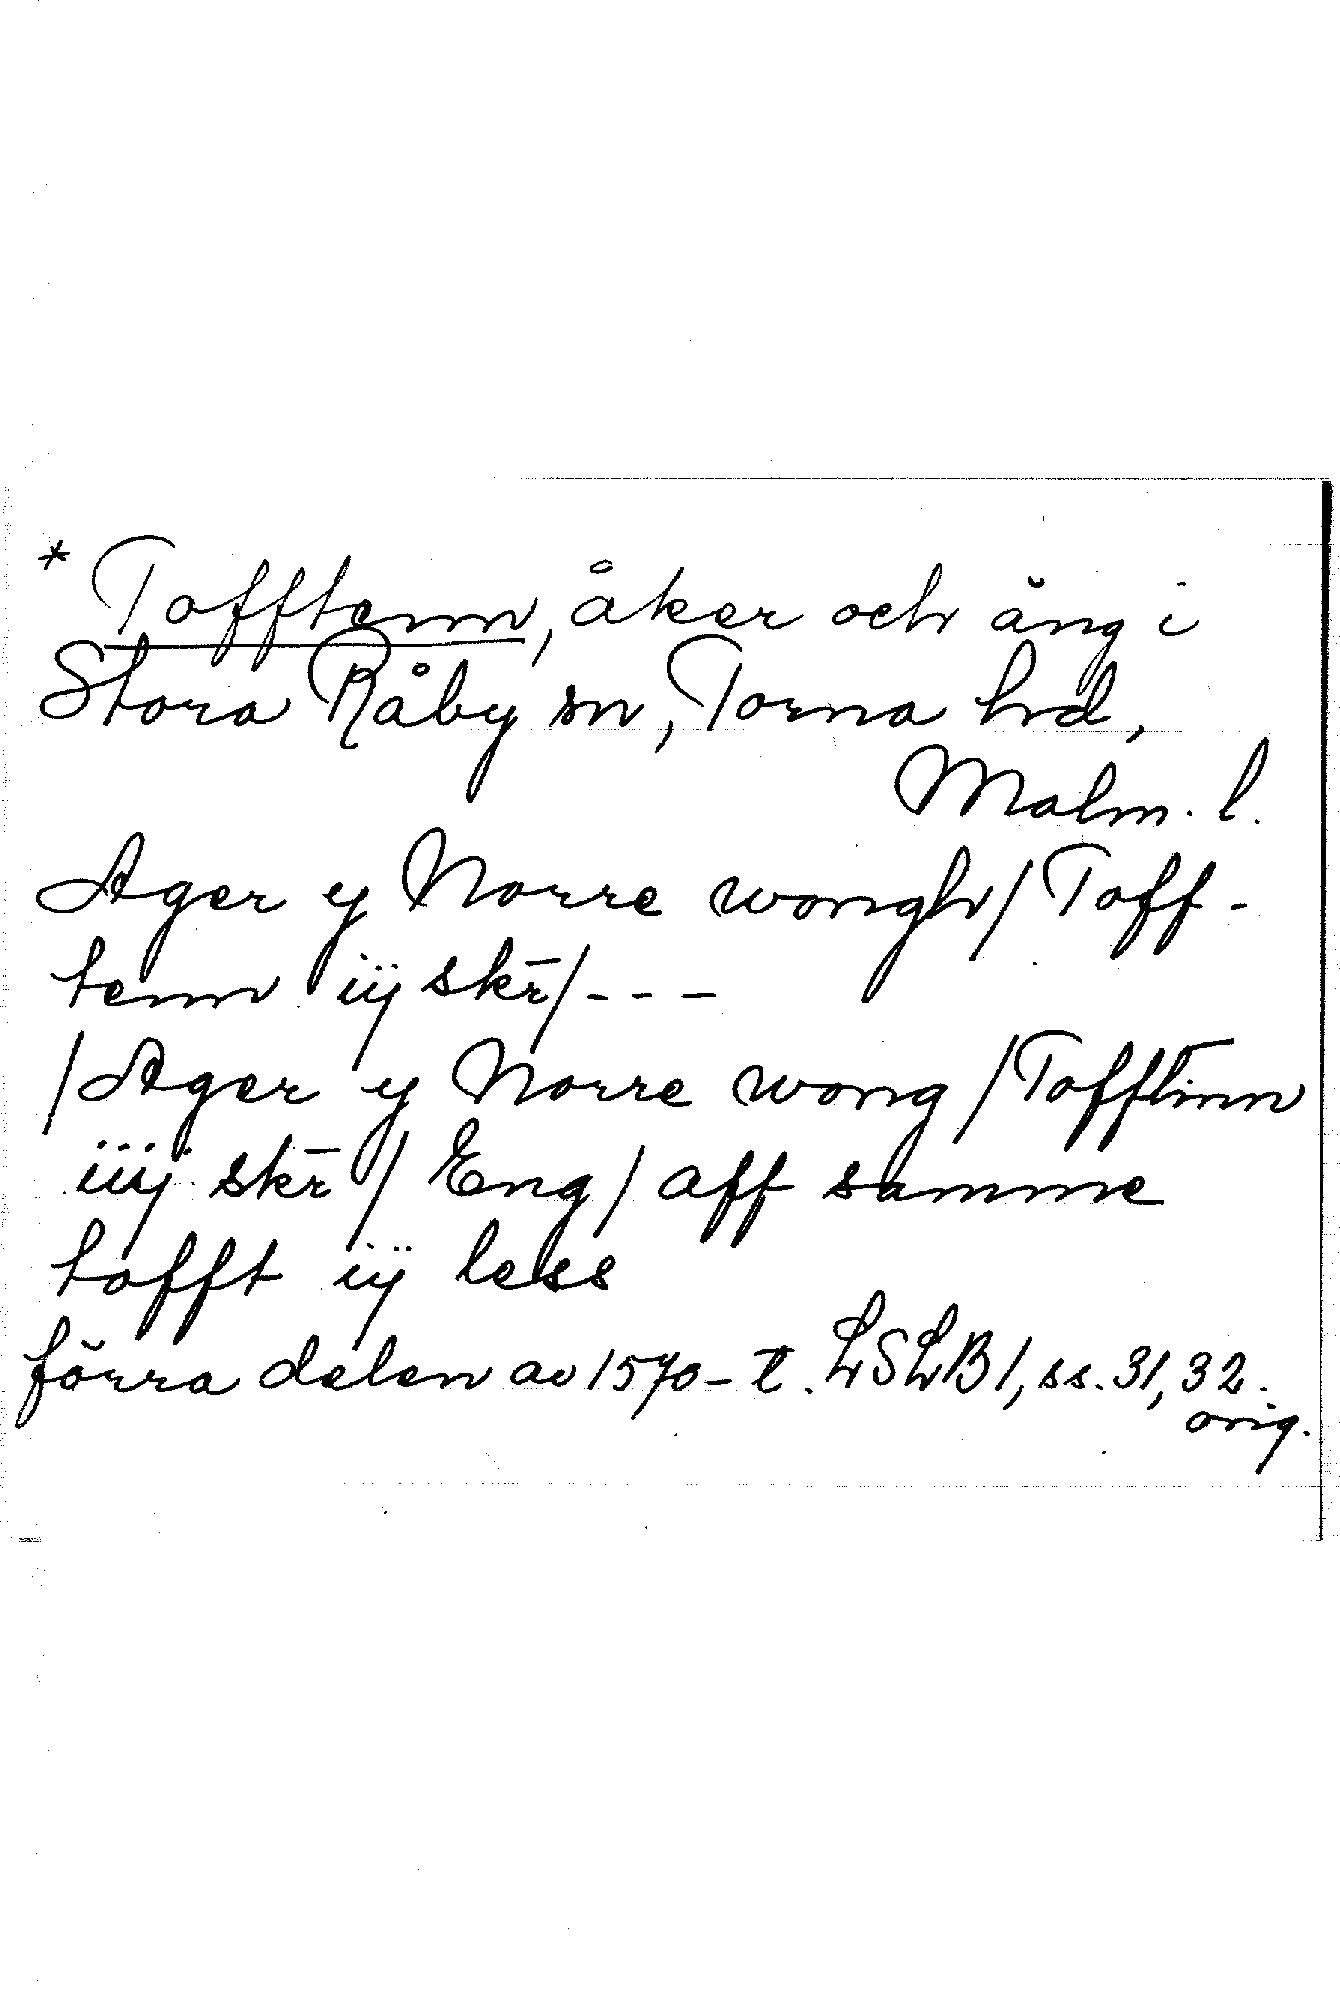 * Tofftenn, åker och äng i
Stora Råby sn, Torna hd,
Malm. l.
Ager y Norre wongh / Toff-
tenn iÿ skr̄ / - - -
/ Ager y Norre wong / Tofftinn
iiij skr̄ / Eng / aff samme
tofft iÿ less
förra delen av 1570-t. LSLB 1, ss. 31, 32.
orig.